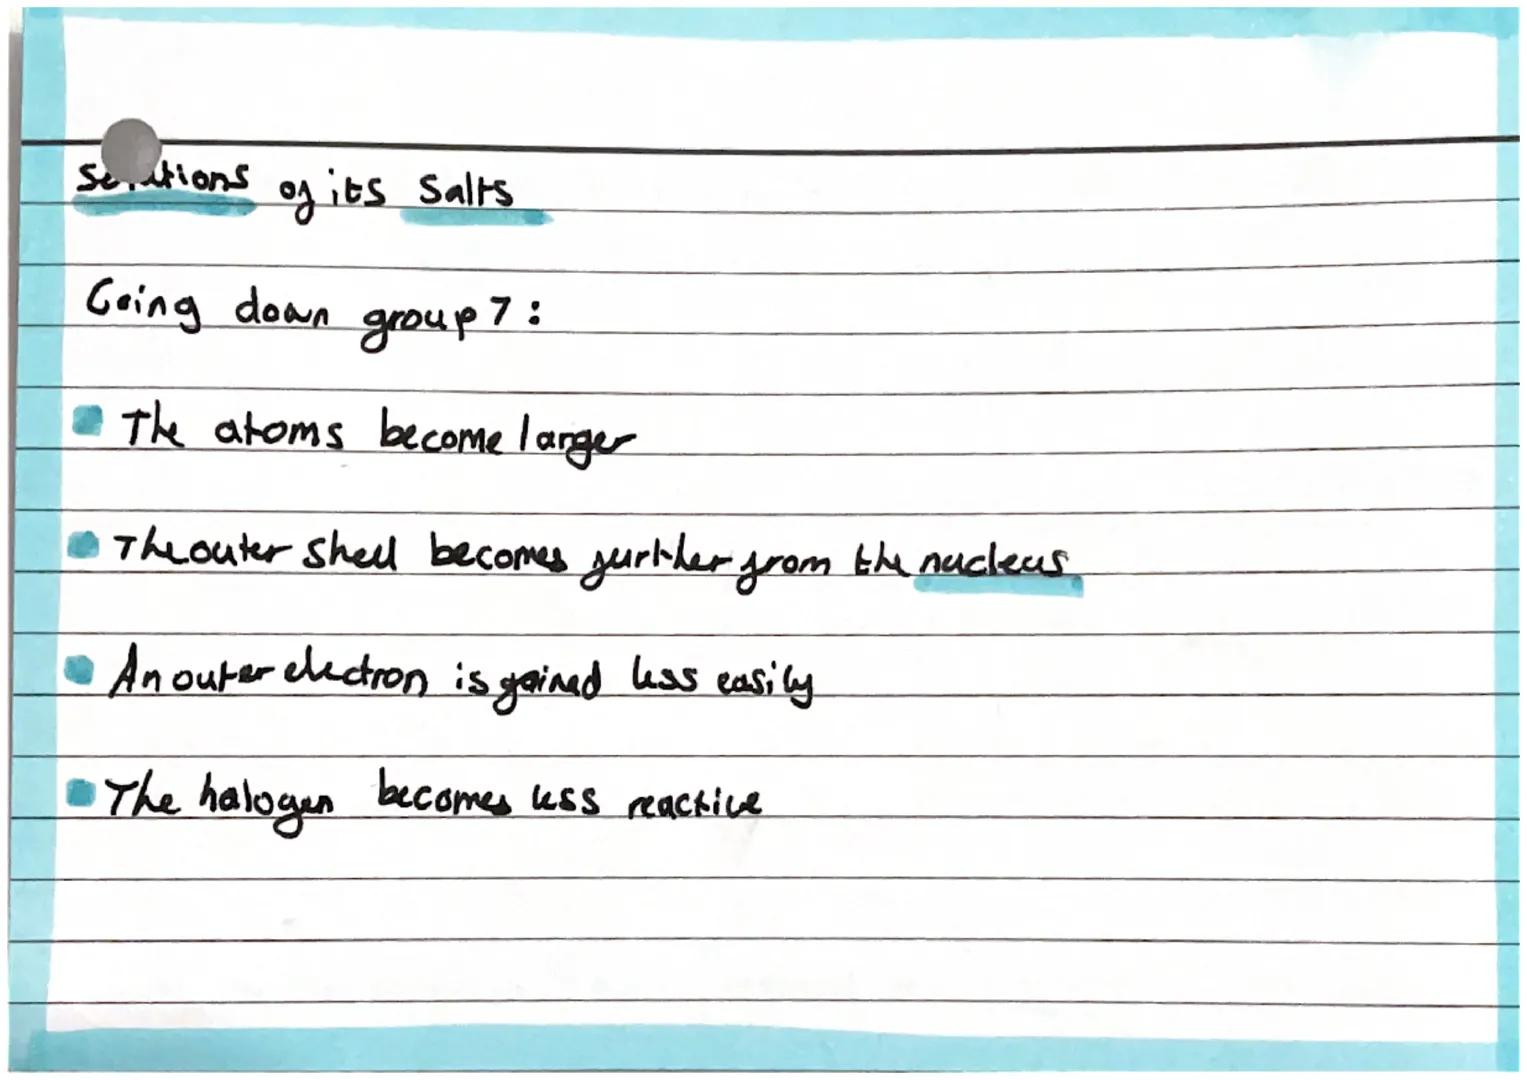 Solutions of its Salts
Going down group 7:
The atoms become larger
The outer shell becomes further from the nucleus
An outer electron is gained less easily
The halogen becomes less reactive